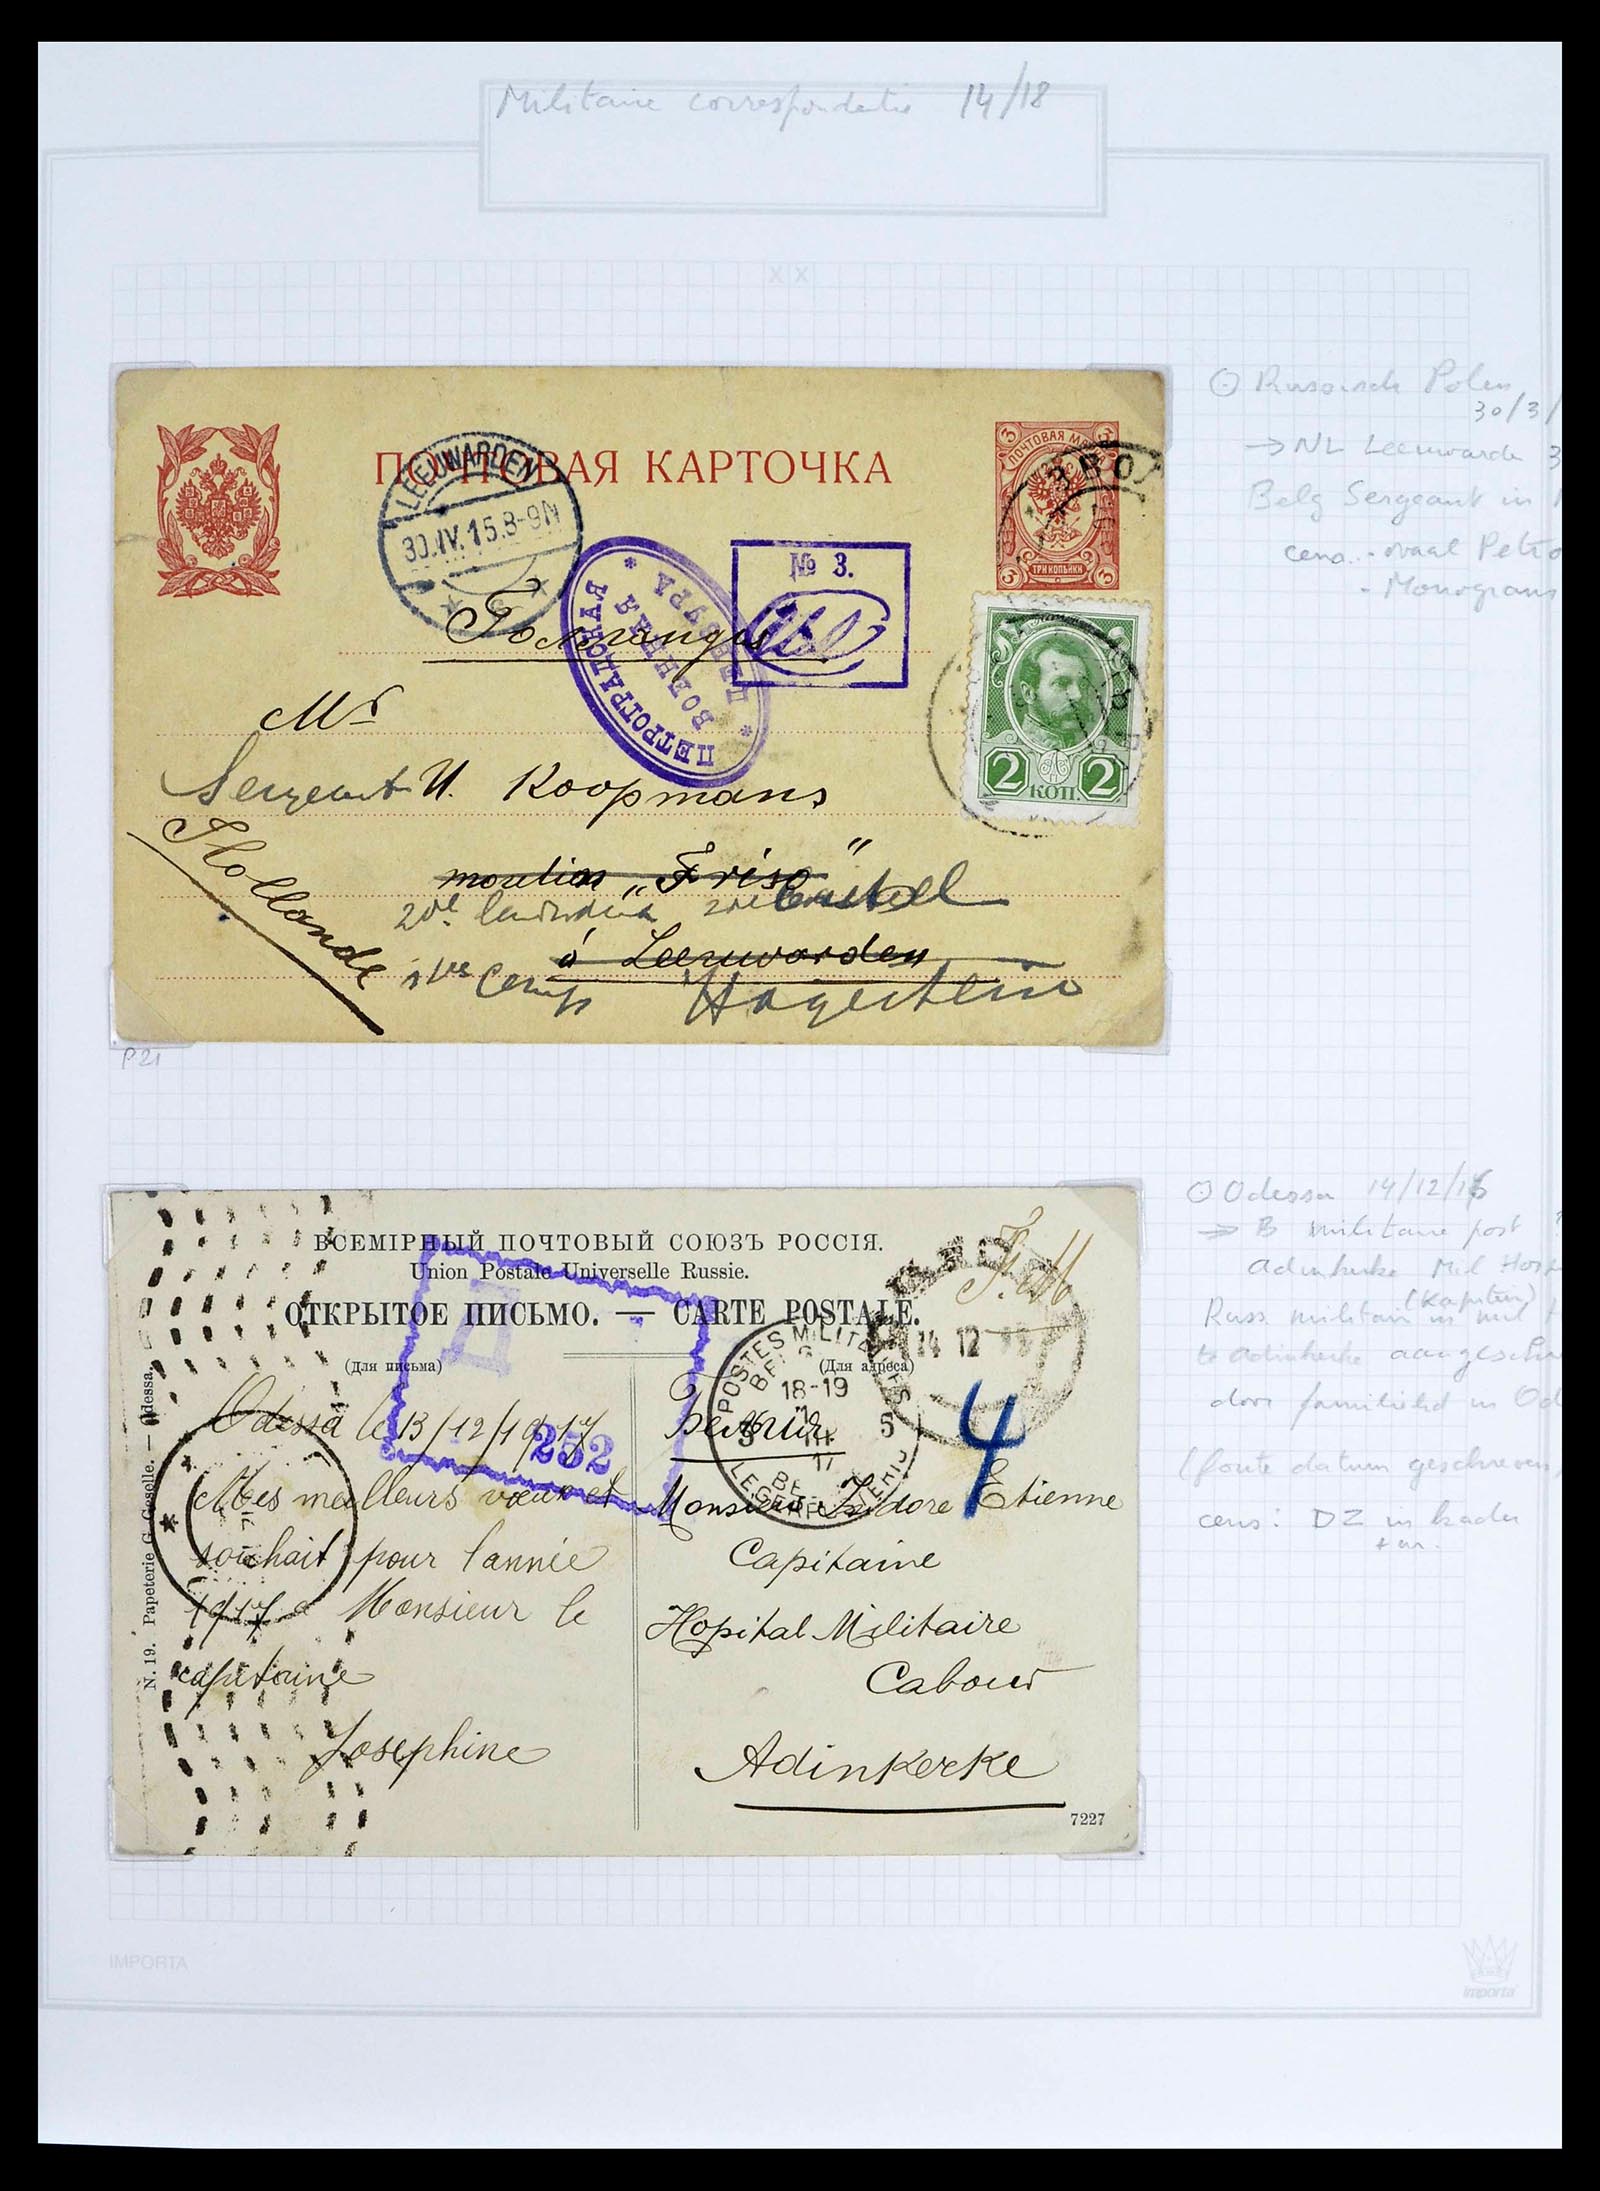 Militaire correspondentie 14/18
x x
ПОЧТОВАЯ КАРТОЧКА
LEEUWARDEN
30.IV.15.8-9N
3 ПОЧТОВАЯ МАРКА 3
3 ТРИ КОПѢЙКИ 3
ПЕТРОГРАДСКАЯ
ВОЕННАЯ
ЦЕНЗУРА
№ 3.
2 КОП. 2
Mr
Sergeant U. Koopmans
moulin „Friso"
à Leeuwarden
Hollande
P.21
⊙ Russisch Polen
30/3/
→ NL Leeuwarden 3
Belg Sergeant in
cens. - ovaal Petro
- Monogram
ВСЕМІРНЫЙ ПОЧТОВЫЙ СОЮЗЪ РОССІЯ.
Union Postale Universelle Russie.
ОТКРЫТОЕ ПИСЬМО. — CARTE POSTALE.
(Для письма)
(Для адреса)
14 12
POSTES MILITAIRES
18-19
17
5 5
4
252
Odessa le 13/12/1917
Mes meilleurs vœux et
souhait pour l'année
1917 a Monsieur le
capitaine
Josephine
Monsieur Isidore Etienne
Capitaine
Hopital Militaire
Cabour
Adinkerke
7227
N. 19. Papeterie G. Geselle. — Odessa.
⊙ Odessa 14/12/16
→ B militaire post
Adinkerke Mil Hosp
Russ militair (Kapitein) in mil
te Adinkerke aangeschr
door familielid in Od
(foute datum geschreven,
cens: DZ in kader
IMPORTA
importa